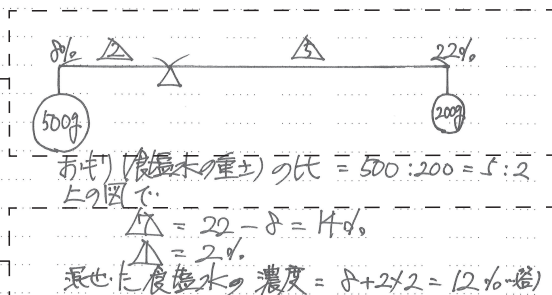 8% △2 △5 22%
500g 200g
おもり(食塩水の重さ)の比 = 500:200 = 5:2
上の図で
△7 = 22 - 8 = 14%
△1 = 2%
混ぜた食塩水の濃度 = 8+2×2 = 12%…答)